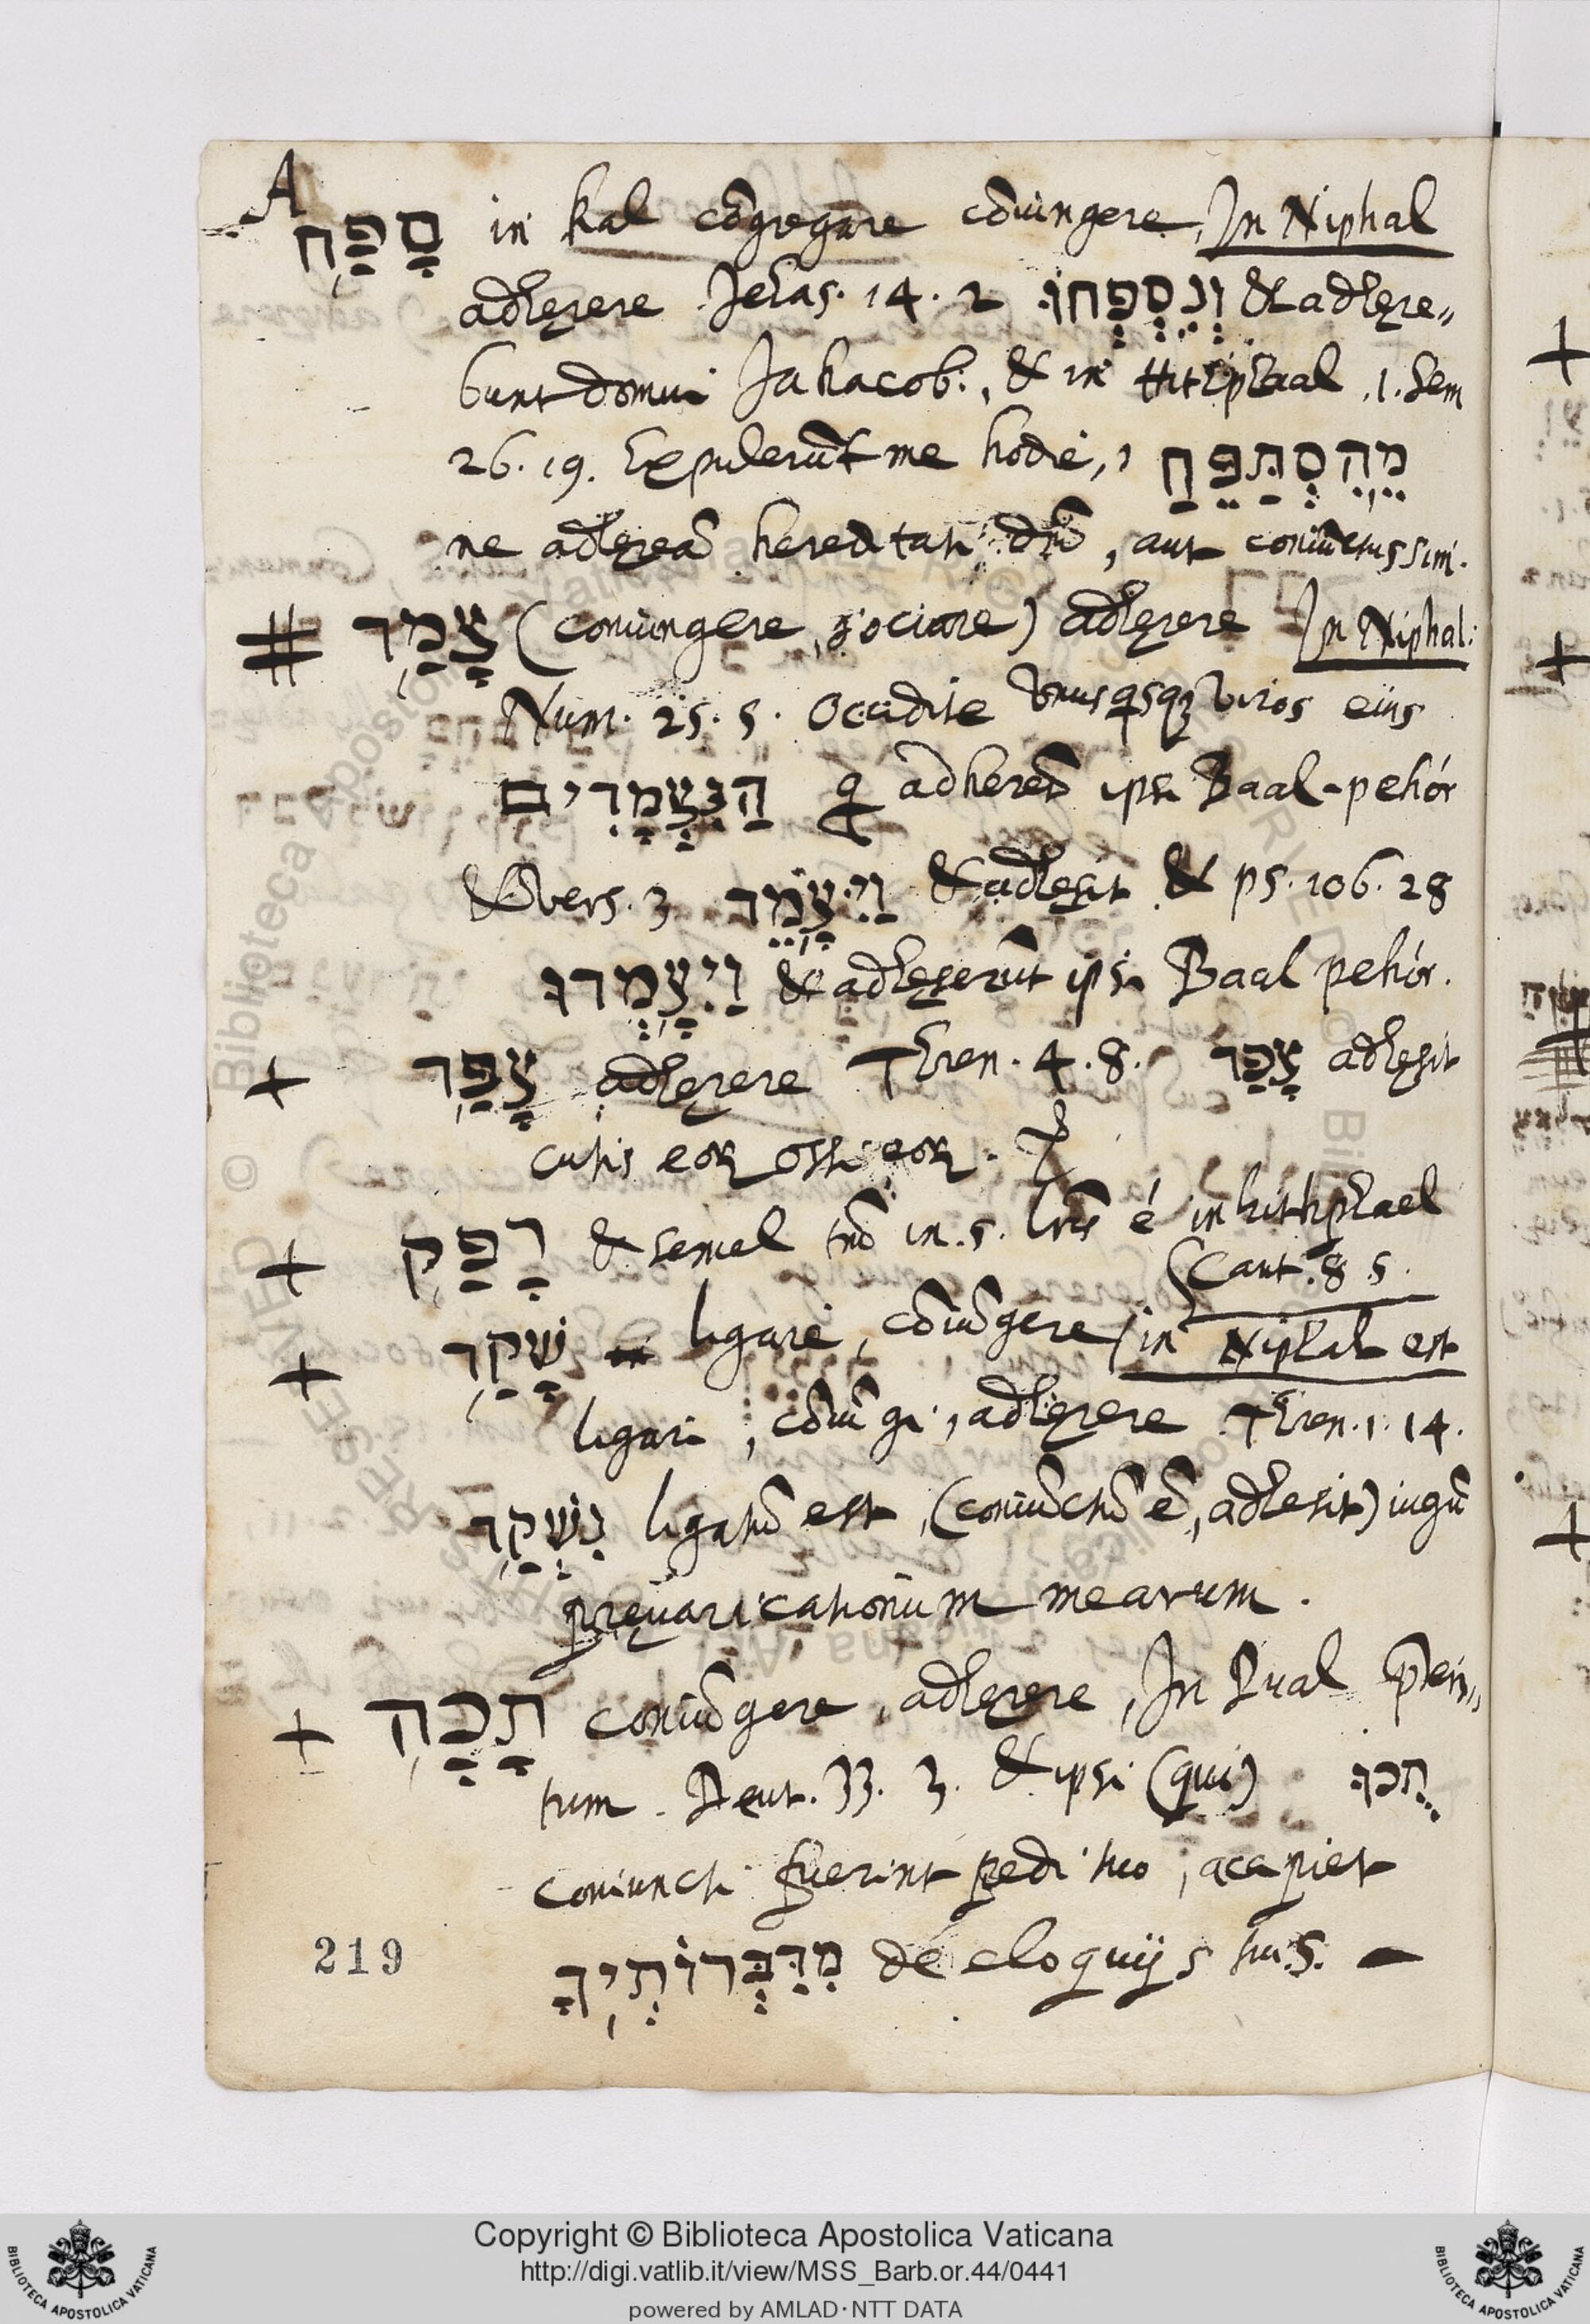 A
סָפַּח in kal cōgregare cōiungere, In Niphal
adhęrere Jehas. 14. 2 וְנִסְפְּחוּ & adhęre„
bunt domui Jahacob:, & in Hithphaal .1. Sem
26. 19. Expulerūt me hodie, מֵהִסְתַּפֵּחַ
ne adhęreā hereditati dn̄i, aut coniūctus sim.
# צָמַד (coniungere, sociare) adhęrere In Niphal:
Num. 25. 5. Occidite vnusqsqȝ viros eius
הַנִּצְמָדִים q adherēt ipsi Baal-pehór
& vers. 3 וַיִּצָּמֶד & adhęsit & ps. 106. 28
וַיִּצָּמְדוּ & adhęserūt ipsi Baal pehór.
+ צָפַּד adhęrere Thren. 4. 8. צָפַד adhęsit
cutis eoꝝ ossi eoꝝ.
+ רָפַּק & semel tm̄ in .s. lr̄is é in hithphael
Cant. 8. 5.
+ שָׁקַד ligare, cōiūgere, in Niphal est
ligari, cōiūgi, adhęrere Thren. 1. 14.
נִשְׁקַד ligatū est, (coniūctū ē, adhesit) iugū
pręuaricationum mearum.
+ תָּכָּה coniūgere, adhęrere, In Pual p̄teri„
tum. Deut. 33. 3. & ipsi (qui) תֻכּוּ
coniuncti fuerint pedi tuo, accipiet
מִדַּבְּרוֹתֶיךָ dé eloquijs tuis. –
219
Copyright © Biblioteca Apostolica Vaticana
http://digi.vatlib.it/view/MSS_Barb.or.44/0441
powered by AMLAD·NTT DATA